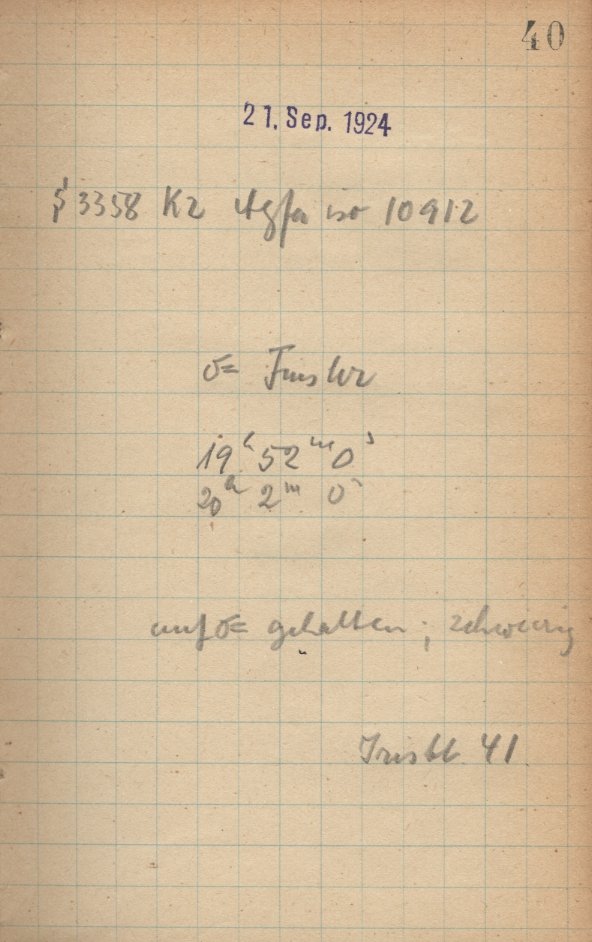 40
21. Sep. 1924
§ 3358 K2 Agfa iso 10912
☄ Finsler
19ʰ 52ᵐ 0ˢ
20ʰ 2ᵐ 0ˢ
auf ☄ gehalten; schwierig
Irisbl. 41